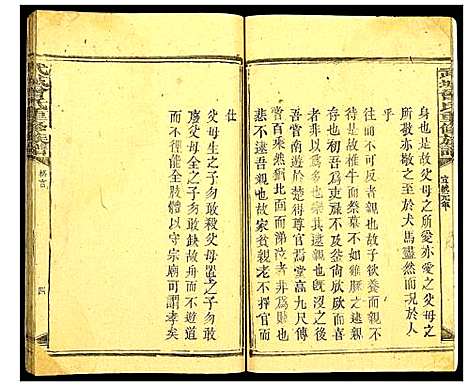 武城曾氏重修族譜
宣統元年
身也是故父母之所愛亦愛之父母之
所敬亦敬之至於犬馬盡然而況於人
乎
往而不反者親也故子欲養而親不
待是故椎牛而祭墓不如雞豚之逮親
存也初吾為吏祿不及釜尚欣欣而喜
者非以為多也樂其逮親也既沒之後
吾嘗南遊於楚得尊官焉堂高九尺轉
百乘然猶北向而涕泣者非為賤也
悲不逮吾親也故家貧親老不擇官而
仕
父母生之子勿敢殺父母置之子勿敢
廢父母全之子勿敢缺故舟而不遊道
而不徑能全肢體以守宗廟可謂孝矣
武城曾氏重修族譜
格言
四